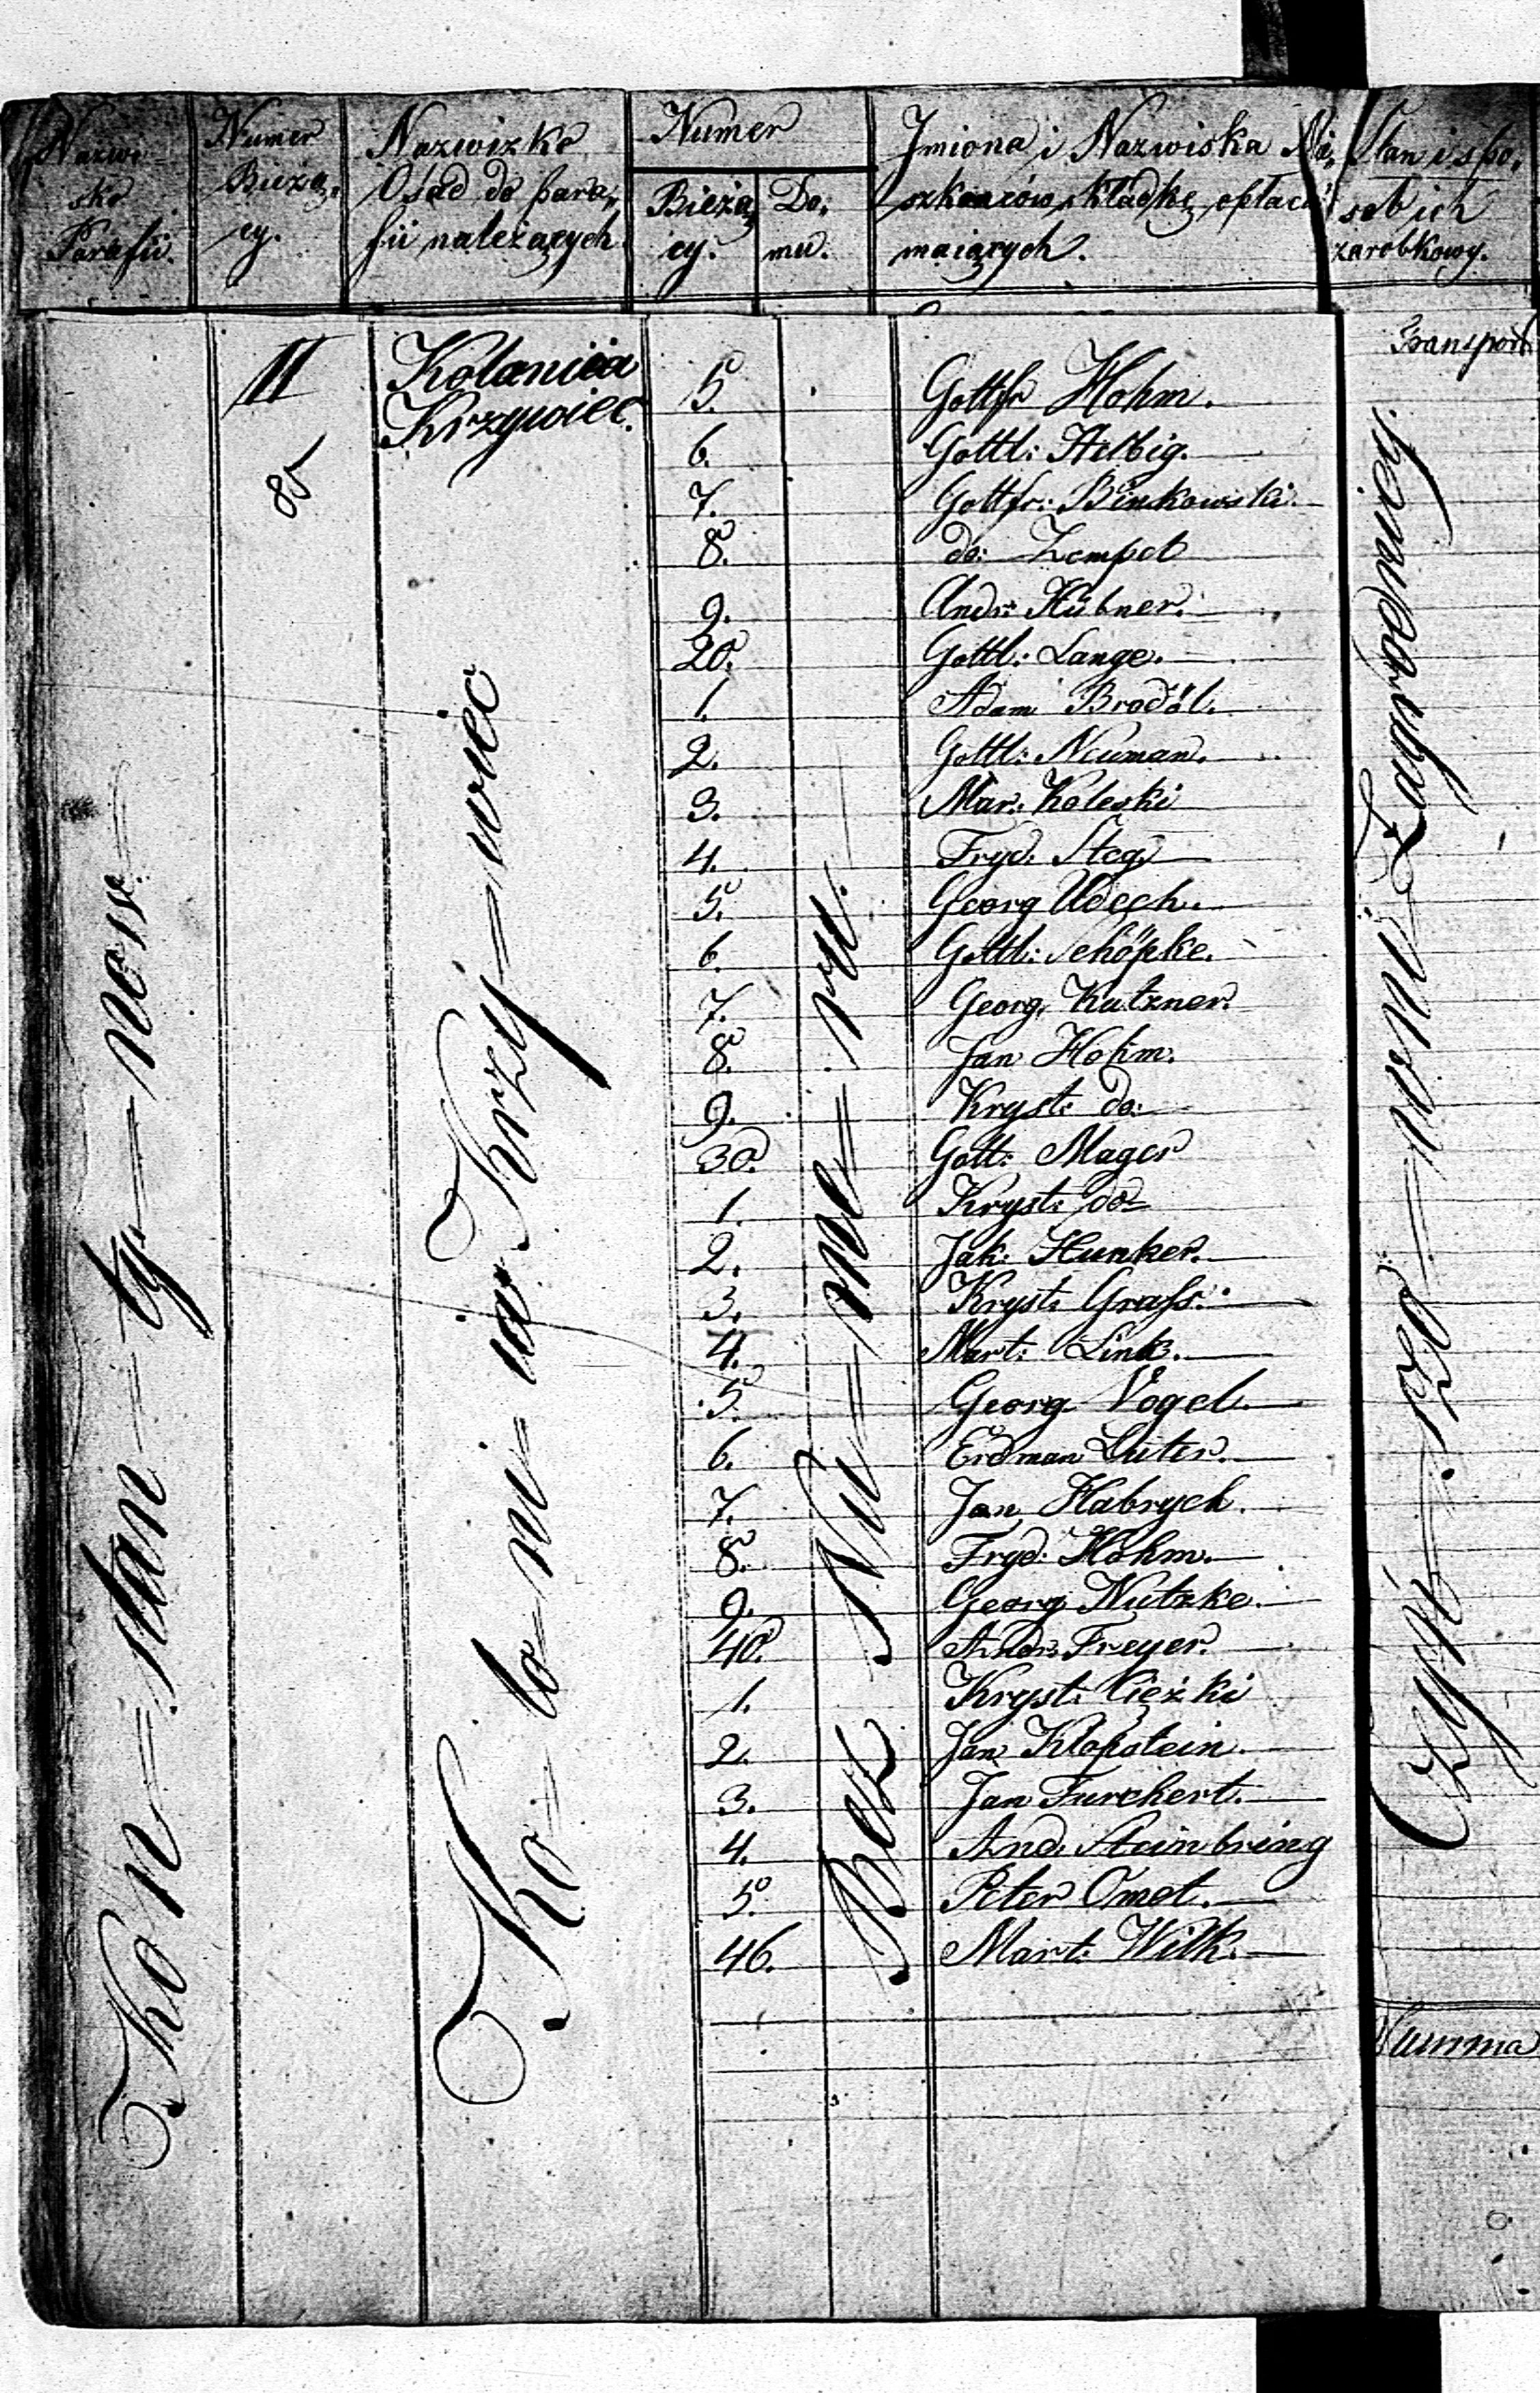 Nazwi-
sko
Parafii.
Numer
Bieżą-
cy.
Nazwizko
Osad do para-
fii należących
Numer
Bieżą-
cy.
Do-
mu.
Jmiona i Nazwiska Mie-
szkancow składkę opłacać
maiących.
Stan i spo-
sob ich
zarobkowy.
Transport
11
Koloniia
Krzywiec.
85
Kon=stan=ty=now
Ko=lo=ni=ia Krzy=wiec
Bez Nu=me=ru.
Czyń=szo=wni Zagrodnicy
5. Gottfr Hohm.
6. Gottl: Helbig.
7. Gottfr: Binkowski.
8. do: Zempel
9. Andr: Hübner.
20. Gottl: Lange.
1. Adam Brodöl.
2. Gottl: Neuman.
3. Mar: Koleski
4. Fryd. Steg
5. Georg Udech.
6. Gottl: Schöpke.
7. Georg Kutzner.
8. Jan Hohm.
9. Kryst: do:
30. Gott: Mages
1. Kryst: do
2. Jak: Hunker.
3. Kryst: Grass.
4. Mart: Link.
5. Georg Vogel.
6. Erdman Luter.
7. Jan Habrych.
8. Fryd: Hohm.
9. Georg Nutzke.
40. Andr: Freyer.
1. Kryst: Cięzki
2. Jan Klopstein.
3. Jan Furchert.
4. And. Steinbring
5. Peter Omet.
46. Mart: Wilk.
Summa